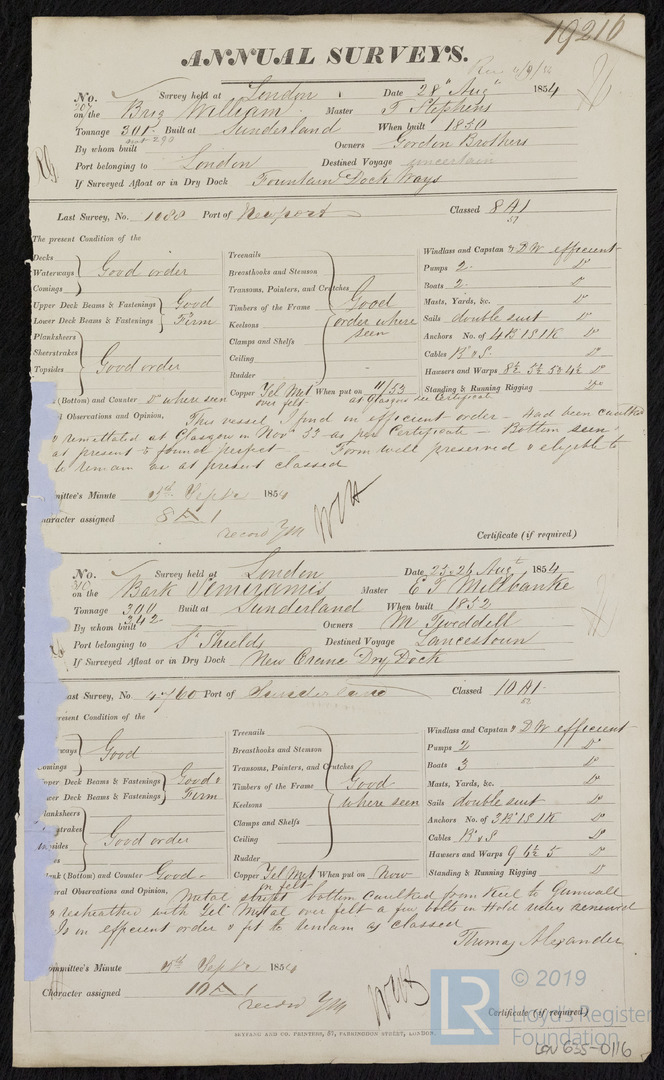 19216
ANNUAL SURVEYS.
No. Survey held at London Date 28 "Aug" 1854
on the Brig William Master T Stephens
Tonnage 301 Built at Sunderland When built 1830
By whom built Owners Gordon Brothers
Port belonging to London Destined Voyage uncertain
If Surveyed Afloat or in Dry Dock Fountain Dock Ways
Last Survey, No. 1088 Port of Newport Classed 8 A1
The present Condition of the
Decks
Waterways
Comings
Good order
Upper Deck Beams & Fastenings
Lower Deck Beams & Fastenings
Good
Firm
Planksheers
Sheerstrakes
Topsides
Good order
(Bottom) and Counter Do where seen
Treenails
Breasthooks and Stemson
Transoms, Pointers, and Crutches
Timbers of the Frame
Keelsons
Clamps and Shelfs
Ceiling
Rudder
Good
order where
seen
Copper Yel Met When put on 11/53
over felt at Glasgow see Certificate
Windlass and Capstan & D W efficient
Pumps 2 Do
Boats 2 Do
Masts, Yards, &c. Do
Sails double suit Do
Anchors No. of 4B 1S 1K Do
Cables B & S Do
Hawsers and Warps Do
Standing & Running Rigging Do
Observations and Opinion, This vessel I find in efficient order - Had been caulked
& remettaled at Glasgow in Novr 53 as per Certificate - Bottom seen
at present & found perfect - Form well preserved & eligible to
to remain as at present classed
mittee's Minute Septr 1854
Character assigned 8 A 1
record YM
Certificate (if required)
No. Survey held at London Date 23 & 24 Augt 1854
on the Bark Semiramis Master E T Millbanke
Tonnage 300 Built at Sunderland When built 1852
342
By whom built Owners M Tweddell
Port belonging to So Shields Destined Voyage Lancestown
If Surveyed Afloat or in Dry Dock New Crane Dry Dock
ast Survey, No 4760 Port of Sunderland Classed 10 A1
present Condition of the
ways
omings
Good
pper Deck Beams & Fastenings
wer Deck Beams & Fastenings
Good &
Firm
lanksheers
strakes
psides
Good order
ank (Bottom) and Counter Good
Treenails
Breasthooks and Stemson
Transoms, Pointers, and Crutches
Timbers of the Frame
Keelsons
Clamps and Shelfs
Ceiling
Rudder
Good
where seen
Copper Yel Met When put on Now
on felt
Windlass and Capstan & D W efficient
Pumps 2 Do
Boats 3 Do
Masts, Yards, &c. Do
Sails double suit Do
Anchors No. of 3B 1S 1K Do
Cables B & S Do
Hawsers and Warps 9 6½ 5 Do
Standing & Running Rigging Do
eral Observations and Opinion, Metal stript bottom caulked from Keel to Gunwall
& resheathed with Yel Metal over felt a few bolts in Hold riders renewed
Is in efficient order & fit to remain as classed
Thomas Alexander
ommittee's Minute Septr 1854
Character assigned 10 A 1
record YM
Certificate (if required)
SEYFANG AND CO. PRINTERS, 57, FARRINGDON STREET, LONDON.
LR © 2019
Lloyd's Register
Foundation
LON 635-0116